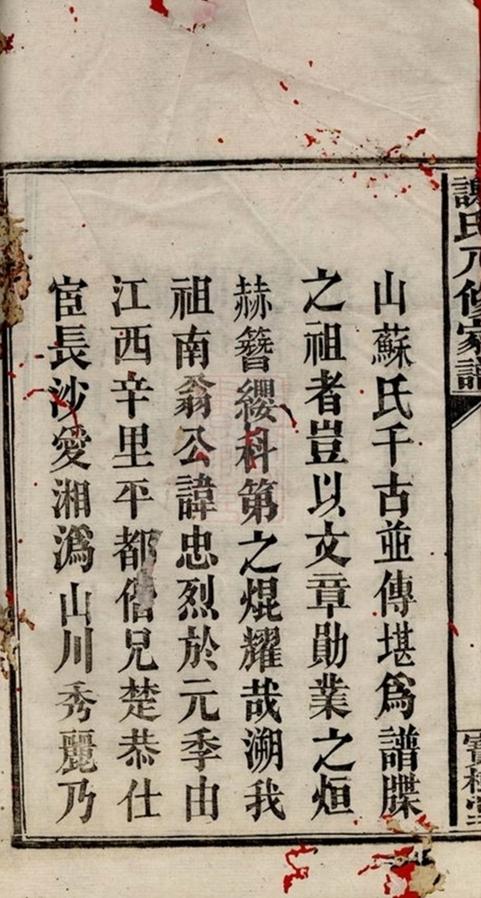 山蘇氏千古並傳堪爲譜牒
之祖者豈以文章勛業之烜
赫簪纓科第之焜耀哉溯我
祖南翁公諱忠烈於元季由
江西辛里平都偕兄楚恭仕
宦長沙愛湘潙山川秀麗乃
氏八修家譜